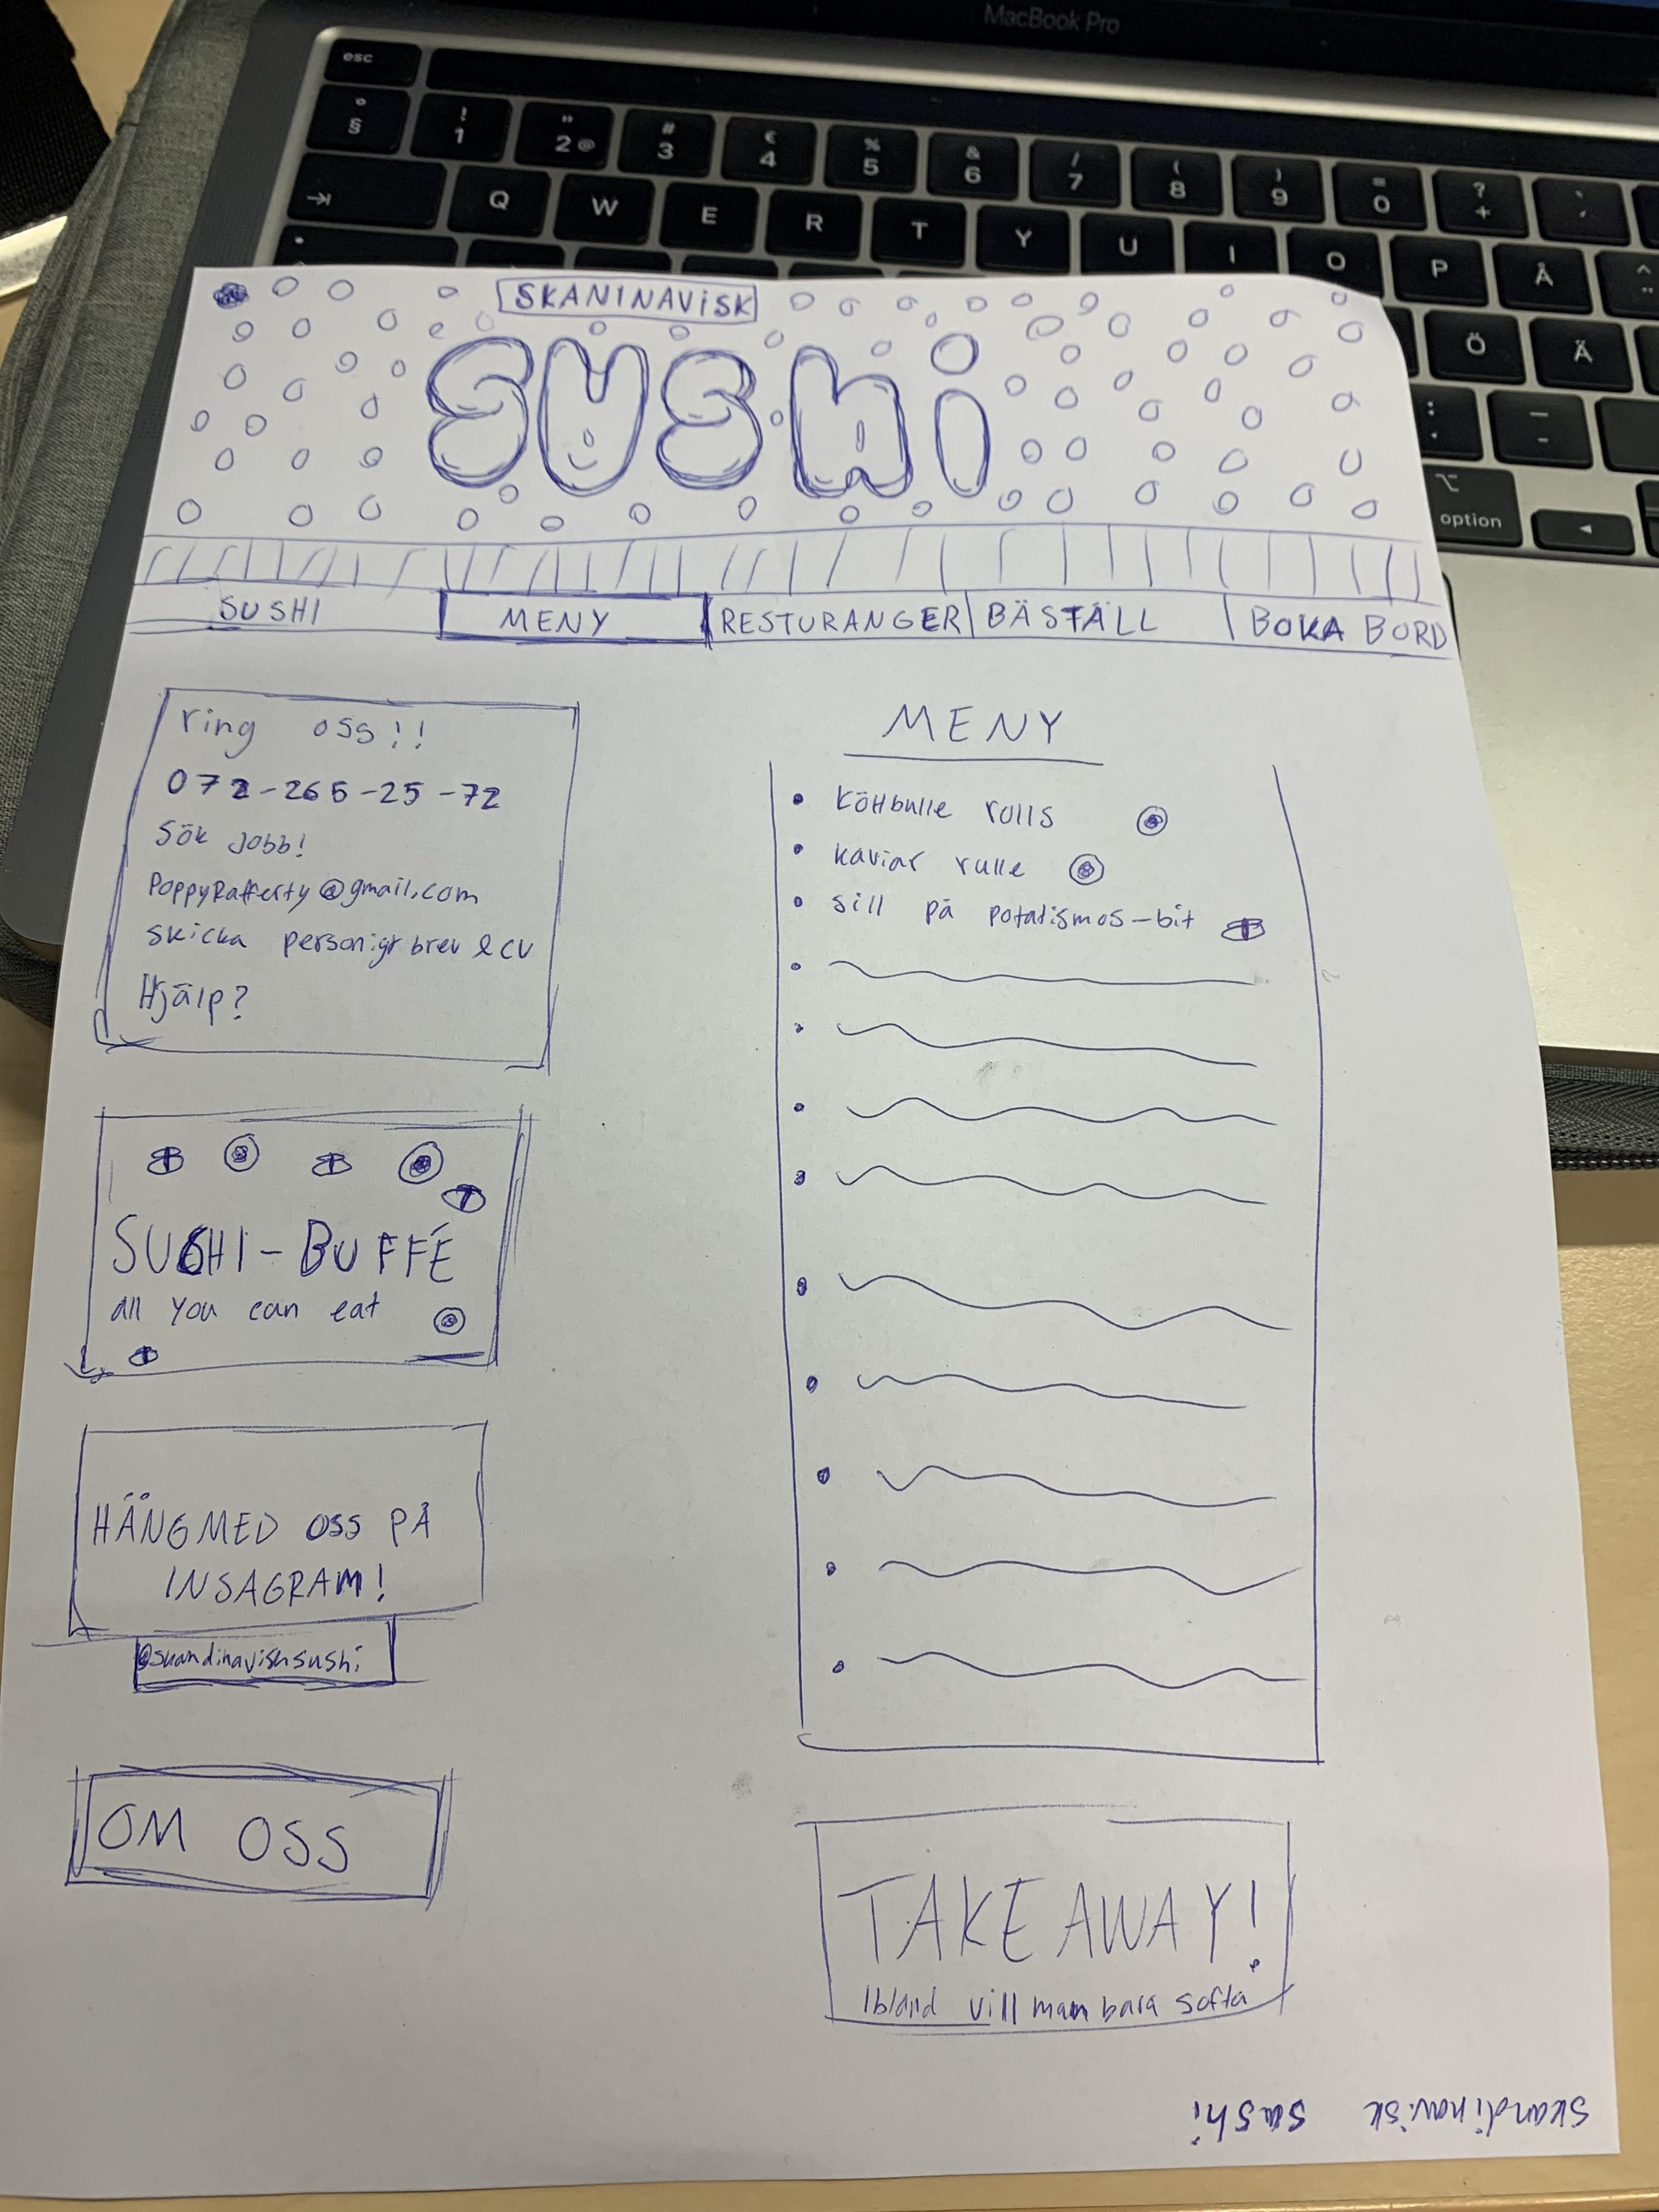 MacBook Pro
esc
° §
! 1
" 2 @
# 3
€ 4
% 5
& 6
/ 7
( 8
) 9
= 0
? +
Q W E R T Y U I O P Å
Ö Ä
option
SKANINAVISK
SUSHi
SUSHI
MENY
RESTURANGER
BÄSTÄLL
BOKA BORD
ring oss!!
072-265-25-72
Sök jobb!
PoppyRafferty@gmail.com
skicka personigt brev & CV
Hjälp?
SUSHI-BUFFÉ
all you can eat
HÄNG MED OSS PÅ
INSAGRAM!
@skandinavisksushi
OM OSS
MENY
• Köttbulle rolls
• kaviar rulle
• sill på potatismos-bit
TAKE AWAY!
Ibland vill man bara softa
skandinavisk sushi